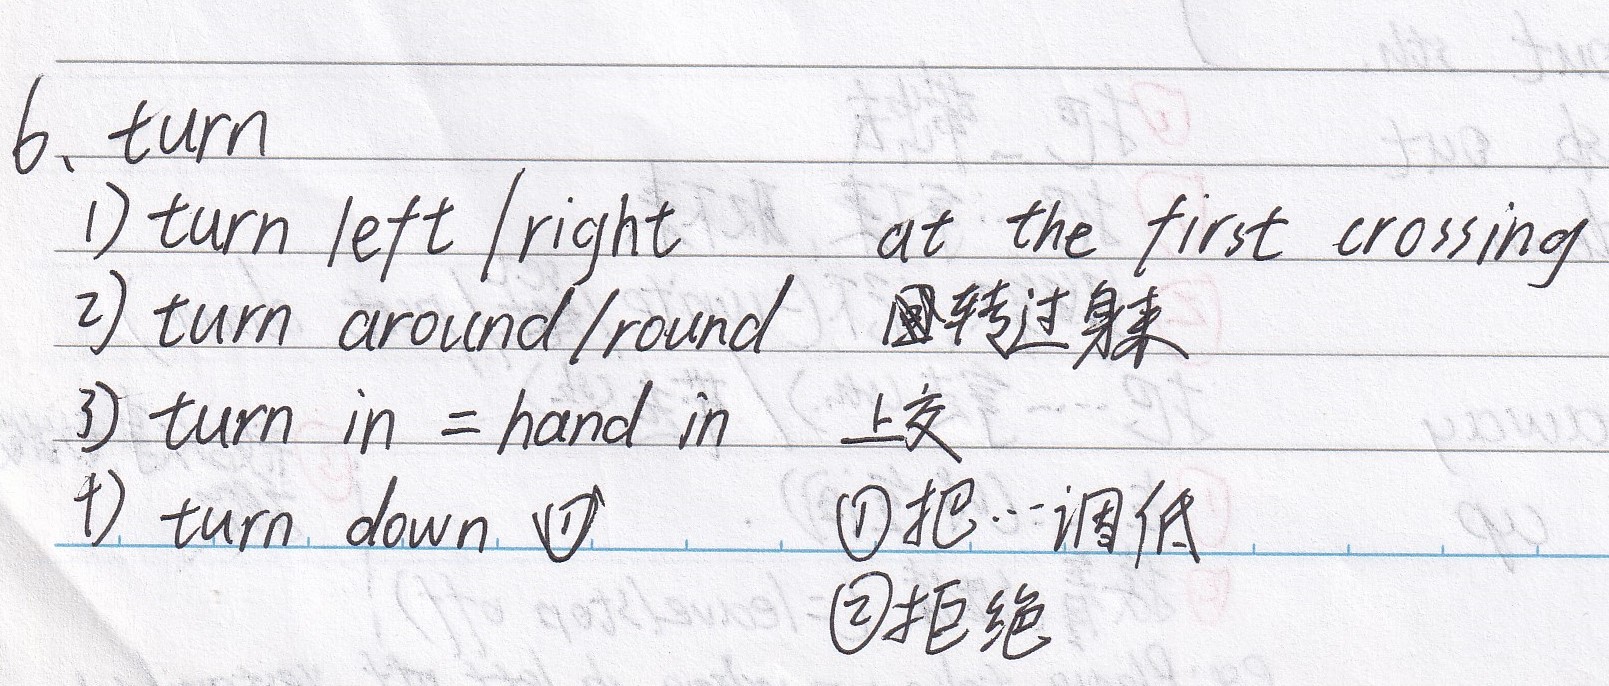 6、turn
1) turn left/right at the first crossing
2) turn around/round 转过身来
3) turn in = hand in 上交
4) turn down ① ①把…调低
②拒绝